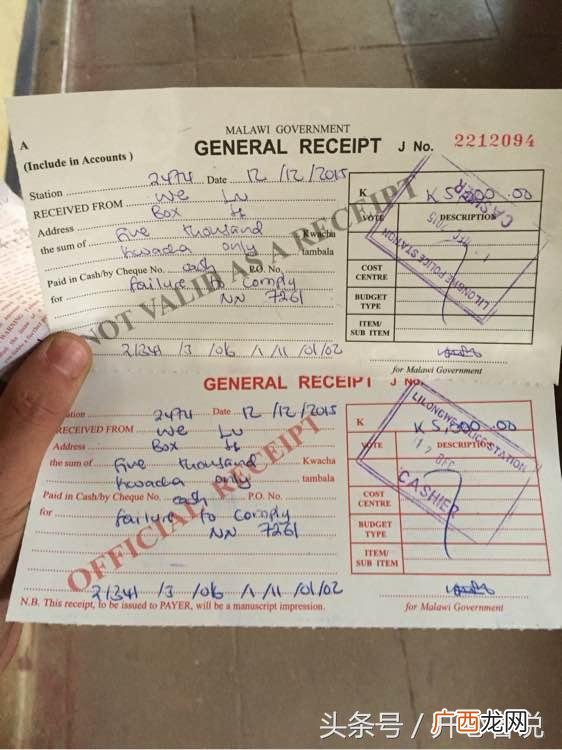 MALAWI GOVERNMENT
A GENERAL RECEIPT J No. 2212094
(Include in Accounts)
Station 2474 Date 12/12/2015
RECEIVED FROM We Lu K K 5,000.00
Address Box VOTE DESCRIPTION
the sum of Five thousand Kwacha
Kwacha only tambala
Paid in Cash/by Cheque No. cash P.O. No. COST CENTRE
for failure to comply BUDGET TYPE
NN 7261 ITEM/ SUB ITEM
21341 /3 /06 /1 /11 /01/02
for Malawi Government
NOT VALID AS A RECEIPT
LILONGWE POLICE STATION
CASHIER
GENERAL RECEIPT J No.
Station 2474 Date 12/12/2015
RECEIVED FROM We Lu K K 5,000.00
Address Box VOTE DESCRIPTION
the sum of Five thousand Kwacha
Kwacha only tambala
Paid in Cash/by Cheque No. cash P.O. No. COST CENTRE
for failure to comply BUDGET TYPE
NN 7261 ITEM/ SUB ITEM
21341 /3 /06 /1 /11 /01/02
N.B. This receipt, to be issued to PAYER, will be a manuscript impression. for Malawi Government
OFFICIAL RECEIPT
LILONGWE POLICE STATION
12 DEC
CASHIER
头条号/
广西龙网